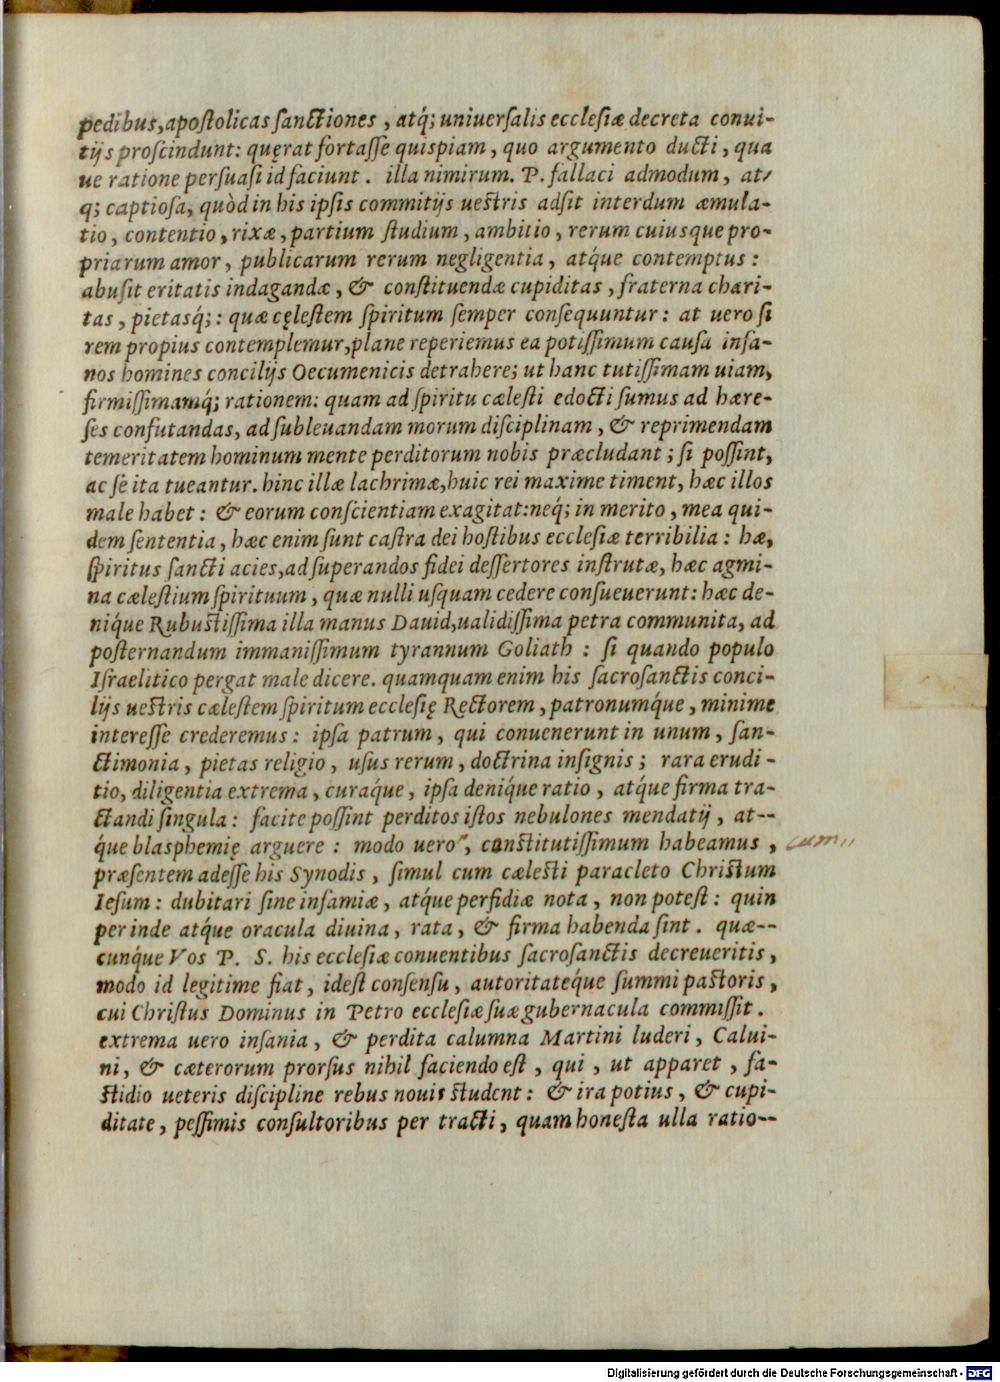 pedibus, apoſtolicas ſanctiones, atq́; uniuerſalis eccleſiæ decreta conui-
tijs proſcindunt: quęrat fortaſſe quispiam, quo argumento ducti, qua
ue ratione perſuaſi id faciunt. illa nimirum. P. fallaci admodum, at/
q; captioſa, quòd in his ipſis commitijs ueſtris adſit interdum æmula-
tio, contentio, rixæ, partium ſtudium, ambitio, rerum cuiusque pro-
priarum amor, publicarum rerum negligentia, atq́ue contemptus:
abuſit eritatis indagandæ, & conſtituendæ cupiditas, fraterna chari-
tas, pietasq́;: quæ cęleſtem ſpiritum ſemper conſequuntur: at uero ſi
rem propius contemplemur, plane reperiemus ea potiſſimum cauſa inſa-
nos homines concilijs Oecumenicis detrahere; ut hanc tutiſſimam uiam,
firmiſſimamq́; rationem: quam ad ſpiritu cæleſti edocti ſumus ad hære-
ſes confutandas, ad ſubleuandam morum diſciplinam, & reprimendam
temeritatem hominum mente perditorum nobis præcludant; ſi poſſint,
ac ſe ita tueantur. hinc illæ lachrimæ, huic rei maxime timent, hæc illos
male habet: & eorum conſcientiam exagitat: neq́; in merito, mea qui-
dem ſententia, hæc enim ſunt caſtra dei hoſtibus eccleſiæ terribilia: hæ,
ſpiritus ſancti acies, ad ſuperandos fidei deſſertores inſtrutæ, hæc agmi-
na cæleſtium ſpirituum, quæ nulli uſquam cedere conſueuerunt: hæc de-
niq́ue Rubuſtiſſima illa manus Dauid, ualidiſſima petra communita, ad
poſternandum immaniſſimum tyrannum Goliath: ſi quando populo
Iſraelitico pergat male dicere. quamquam enim his ſacroſanctis conci-
lijs ueſtris cæleſtem ſpiritum eccleſię Rectorem, patronumq́ue, minime
intereſſe crederemus: ipſa patrum, qui conuenerunt in unum, ſan-
ctimonia, pietas religio, uſus rerum, doctrina inſignis; rara erudi-
tio, diligentia extrema, curaq́ue, ipſa deniq́ue ratio, atq́ue firma tra-
ctandi ſingula: facite poſſint perditos iſtos nebulones mendatij, at--
q́ue blasphemię arguere: modo uero", conſtitutiſſimum habeamus, cum,,
præſentem adeſſe his Synodis, ſimul cum cæleſti paracleto Chriſtum
Ieſum: dubitari ſine infamiæ, atq́ue perfidiæ nota, non poteſt: quin
perinde atq́ue oracula diuina, rata, & firma habenda ſint. quæ--
cunq́ue Vos P. S. his eccleſiæ conuentibus ſacroſanctis decreueritis,
modo id legitime fiat, ideſt conſenſu, autoritateq́ue ſummi paſtoris,
cui Chriſtus Dominus in Petro eccleſiæ ſuæ gubernacula commiſſit.
extrema uero inſania, & perdita calumna Martini luderi, Calui-
ni, & cæterorum prorſus nihil faciendo eſt, qui, ut apparet, fa-
ſtidio ueteris diſcipline rebus nouis ſtudent: & ira potius, & cupi-
ditate, peſſimis conſultoribus per tracti, quam honeſta ulla ratio--
Digitalisierung gefördert durch die Deutsche Forschungsgemeinschaft - DFG